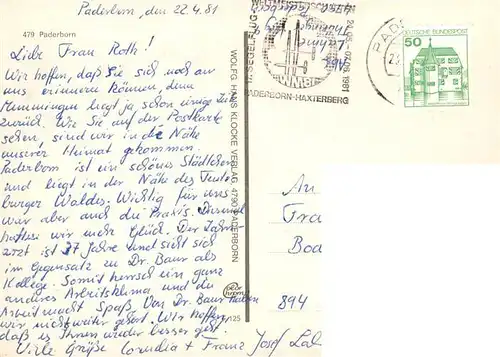 Paderborn, den 22.4.81
479 Paderborn
Liebe Frau Roth!
Wir hoffen, daß Sie sich noch an
uns erinnern können, denn
Memmingen liegt ja schon einige Zeit
zurück. Wie Sie auf der Postkarte
sehen, sind wir in die Nähe
unserer Heimat gekommen.
Paderborn ist ein schönes Städtchen
und liegt in der Nähe des Teuto-
burger Waldes. Wichtig für uns
war aber auch die Praxis. Diesmal
hatten wir mehr Glück. Der Zahn-
arzt ist 37 Jahre und sieht sich
im Gegensatz zu Dr. Baur als
Kollege. Somit herrscht ein ganz
anderes Arbeitsklima und die
Arbeit macht Spaß. Von Dr. Baur haben
wir nichts weiter gehört. Wir hoffen,
daß es Ihnen wieder besser geht.
Viele Grüße Cornelia + Franz Josef
WOLFG. HANS KLOCKE VERLAG 4790 PADERBORN
WELTMEISTERSCHAFTEN
SEGELFLUG
24.05.-07.06.1981
PADERBORN-HAXTERBERG
DEUTSCHE BUNDESPOST
50
An
894